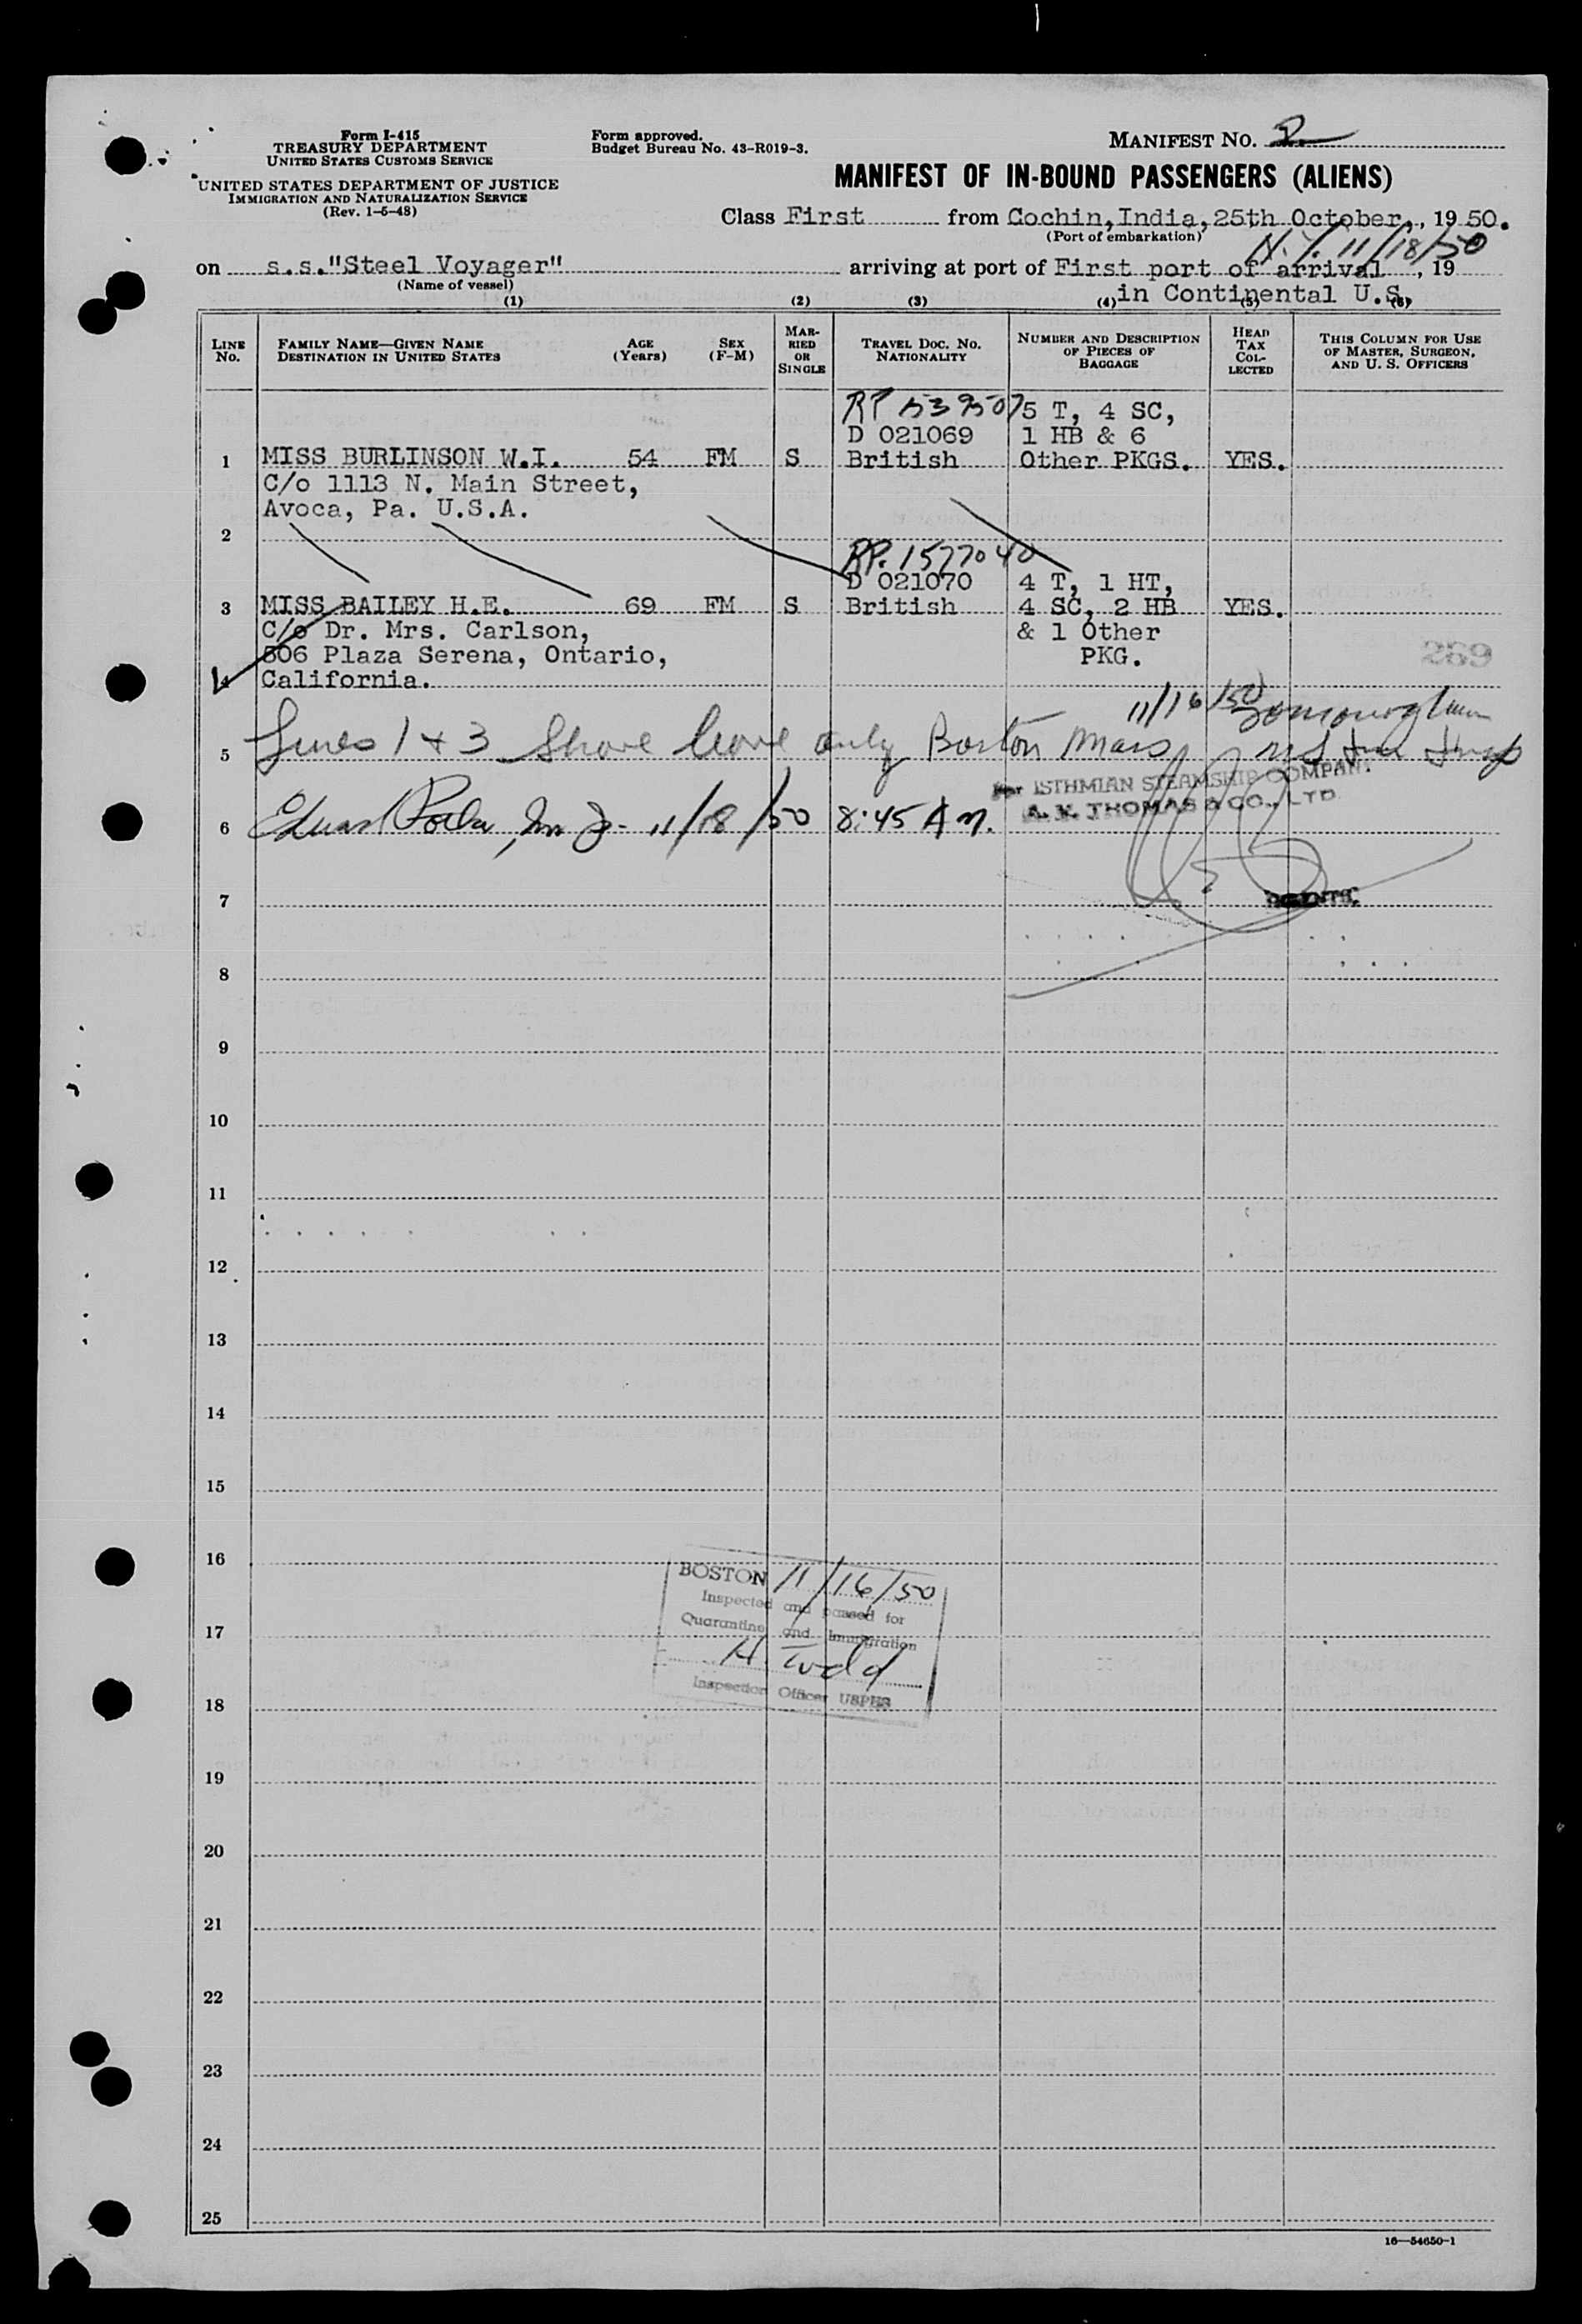 Form I-415
TREASURY DEPARTMENT
UNITED STATES CUSTOMS SERVICE
UNITED STATES DEPARTMENT OF JUSTICE
IMMIGRATION AND NATURALIZATION SERVICE
(Rev. 1-5-48)
Form approved.
Budget Bureau No. 43-R019-3.
MANIFEST NO. 2
MANIFEST OF IN-BOUND PASSENGERS (ALIENS)
Class First from Cochin, India, 25th October, 19 50.
(Port of embarkation)
N.Y. 11/18/50
on s.s."Steel Voyager" arriving at port of First port of arrival, 19
(Name of vessel)
in Continental U.S.
(1) (2) (3) (4) (5) (6)
LINE No. FAMILY NAME—GIVEN NAME DESTINATION IN UNITED STATES AGE (Years) SEX (F-M) MARRIED OR SINGLE TRAVEL DOC. NO. NATIONALITY NUMBER AND DESCRIPTION OF PIECES OF BAGGAGE HEAD TAX COLLECTED THIS COLUMN FOR USE OF MASTER, SURGEON, AND U. S. OFFICERS
RP 539507 5 T, 4 SC,
D 021069 1 HB & 6
1 MISS BURLINSON W.I. 54 FM S British Other PKGS. YES.
C/o 1113 N. Main Street,
Avoca, Pa. U.S.A.
2
RP. 1577040
D 021070 4 T, 1 HT,
3 MISS BAILEY H.E. 69 FM S British 4 SC, 2 HB YES.
C/o Dr. Mrs. Carlson, & 1 Other
506 Plaza Serena, Ontario, PKG. 269
4 California.
11/16/50
5 Lines 1 & 3 Shore leave only Boston Mass
For ISTHMIAN STEAMSHIP COMPANY
A. V. THOMAS & CO., LTD.
6 11/18/50 8:45 AM.
7 AGENTS.
8
9
10
11
12
13
14
15
16
BOSTON 11/16/50
Inspected and passed for
17
Quarantine and Immigration
H. Todd
Inspection Officer USPHS
18
19
20
21
22
23
24
25
16—54650-1